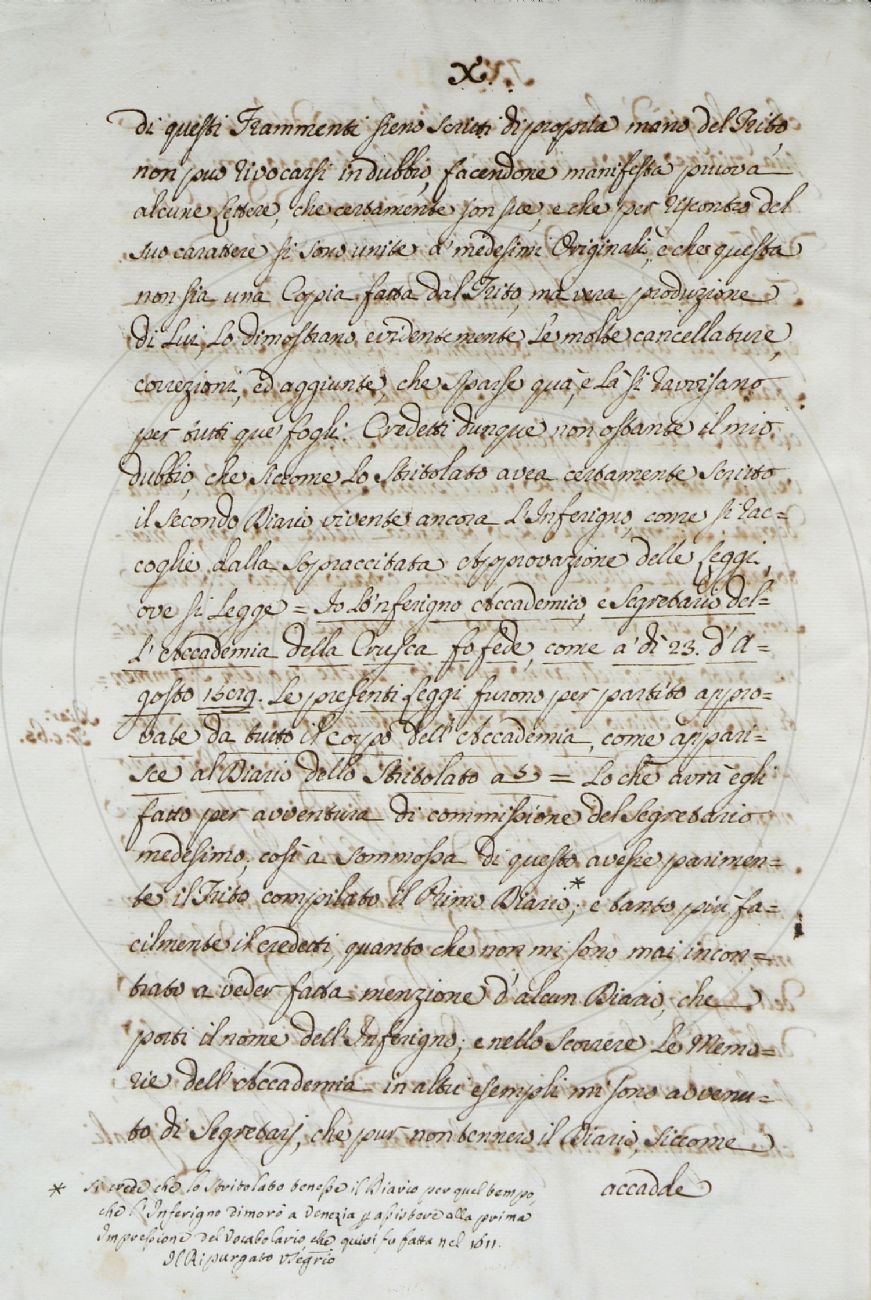 X.
di questi Frammenti sieno scritti di propria mano del Trito,
non può rivocarsi in dubbio, facendone manifesta pruova
alcune Lettere, che certamente son sue, e che per riscontro del
suo carattere si sono unite a' medesimi Originali, e che questa
non sia una Copia fatta dal Trito, ma vera produzione
di Lui, Lo dimostrano evidentemente Le molte cancellature,
correzioni, ed aggiunte, che sparse quà, e Là si ravvisano
per tutti que' fogli. Credetti dunque non ostante il mio
dubbio, che siccome Lo Stritolato avea certamente scritto
il Secondo Diario vivente ancora L'Inferigno, come si rac=
coglie dalla sopraccitata Approvazione delle Leggi,
ove si Legge = Io Lo'nferigno Accademico, e Segretario del=
L'Accademia della Crusca fo fede, come a' dì 23. d'A=
gosto 1589. Le presenti Leggi furono per partito appro=
Diar.
vate da tutto il corpo dell'Accademia, come appari=
sce al Diario dello Stritolato a 5 = Lo chè avrà egli
fatto per avventura di commissione del Segretario
medesimo, così a sommossa di questo avesse parimen=
te il Trito compilato il Primo Diario*; e tanto più fa=
cilmente il credetti, quanto che non mi sono mai incon=
trato a veder fatta menzione d'alcun Diario, che
porti il nome dell'Inferigno; e nello scorrere Le Memo=
rie dell'Accademia in altri esempli mi sono avvenu=
to di Segretarj, che pur non tennero il Diario, siccome
accadde
* Si crede che lo Stritolato tenesse il Diario per quel tempo,
che l'Inferigno dimorò a Venezia p assistere alla prima
Impressione del Vocabolario che quivi fu fatta nel 1611.
Il Ripurgato